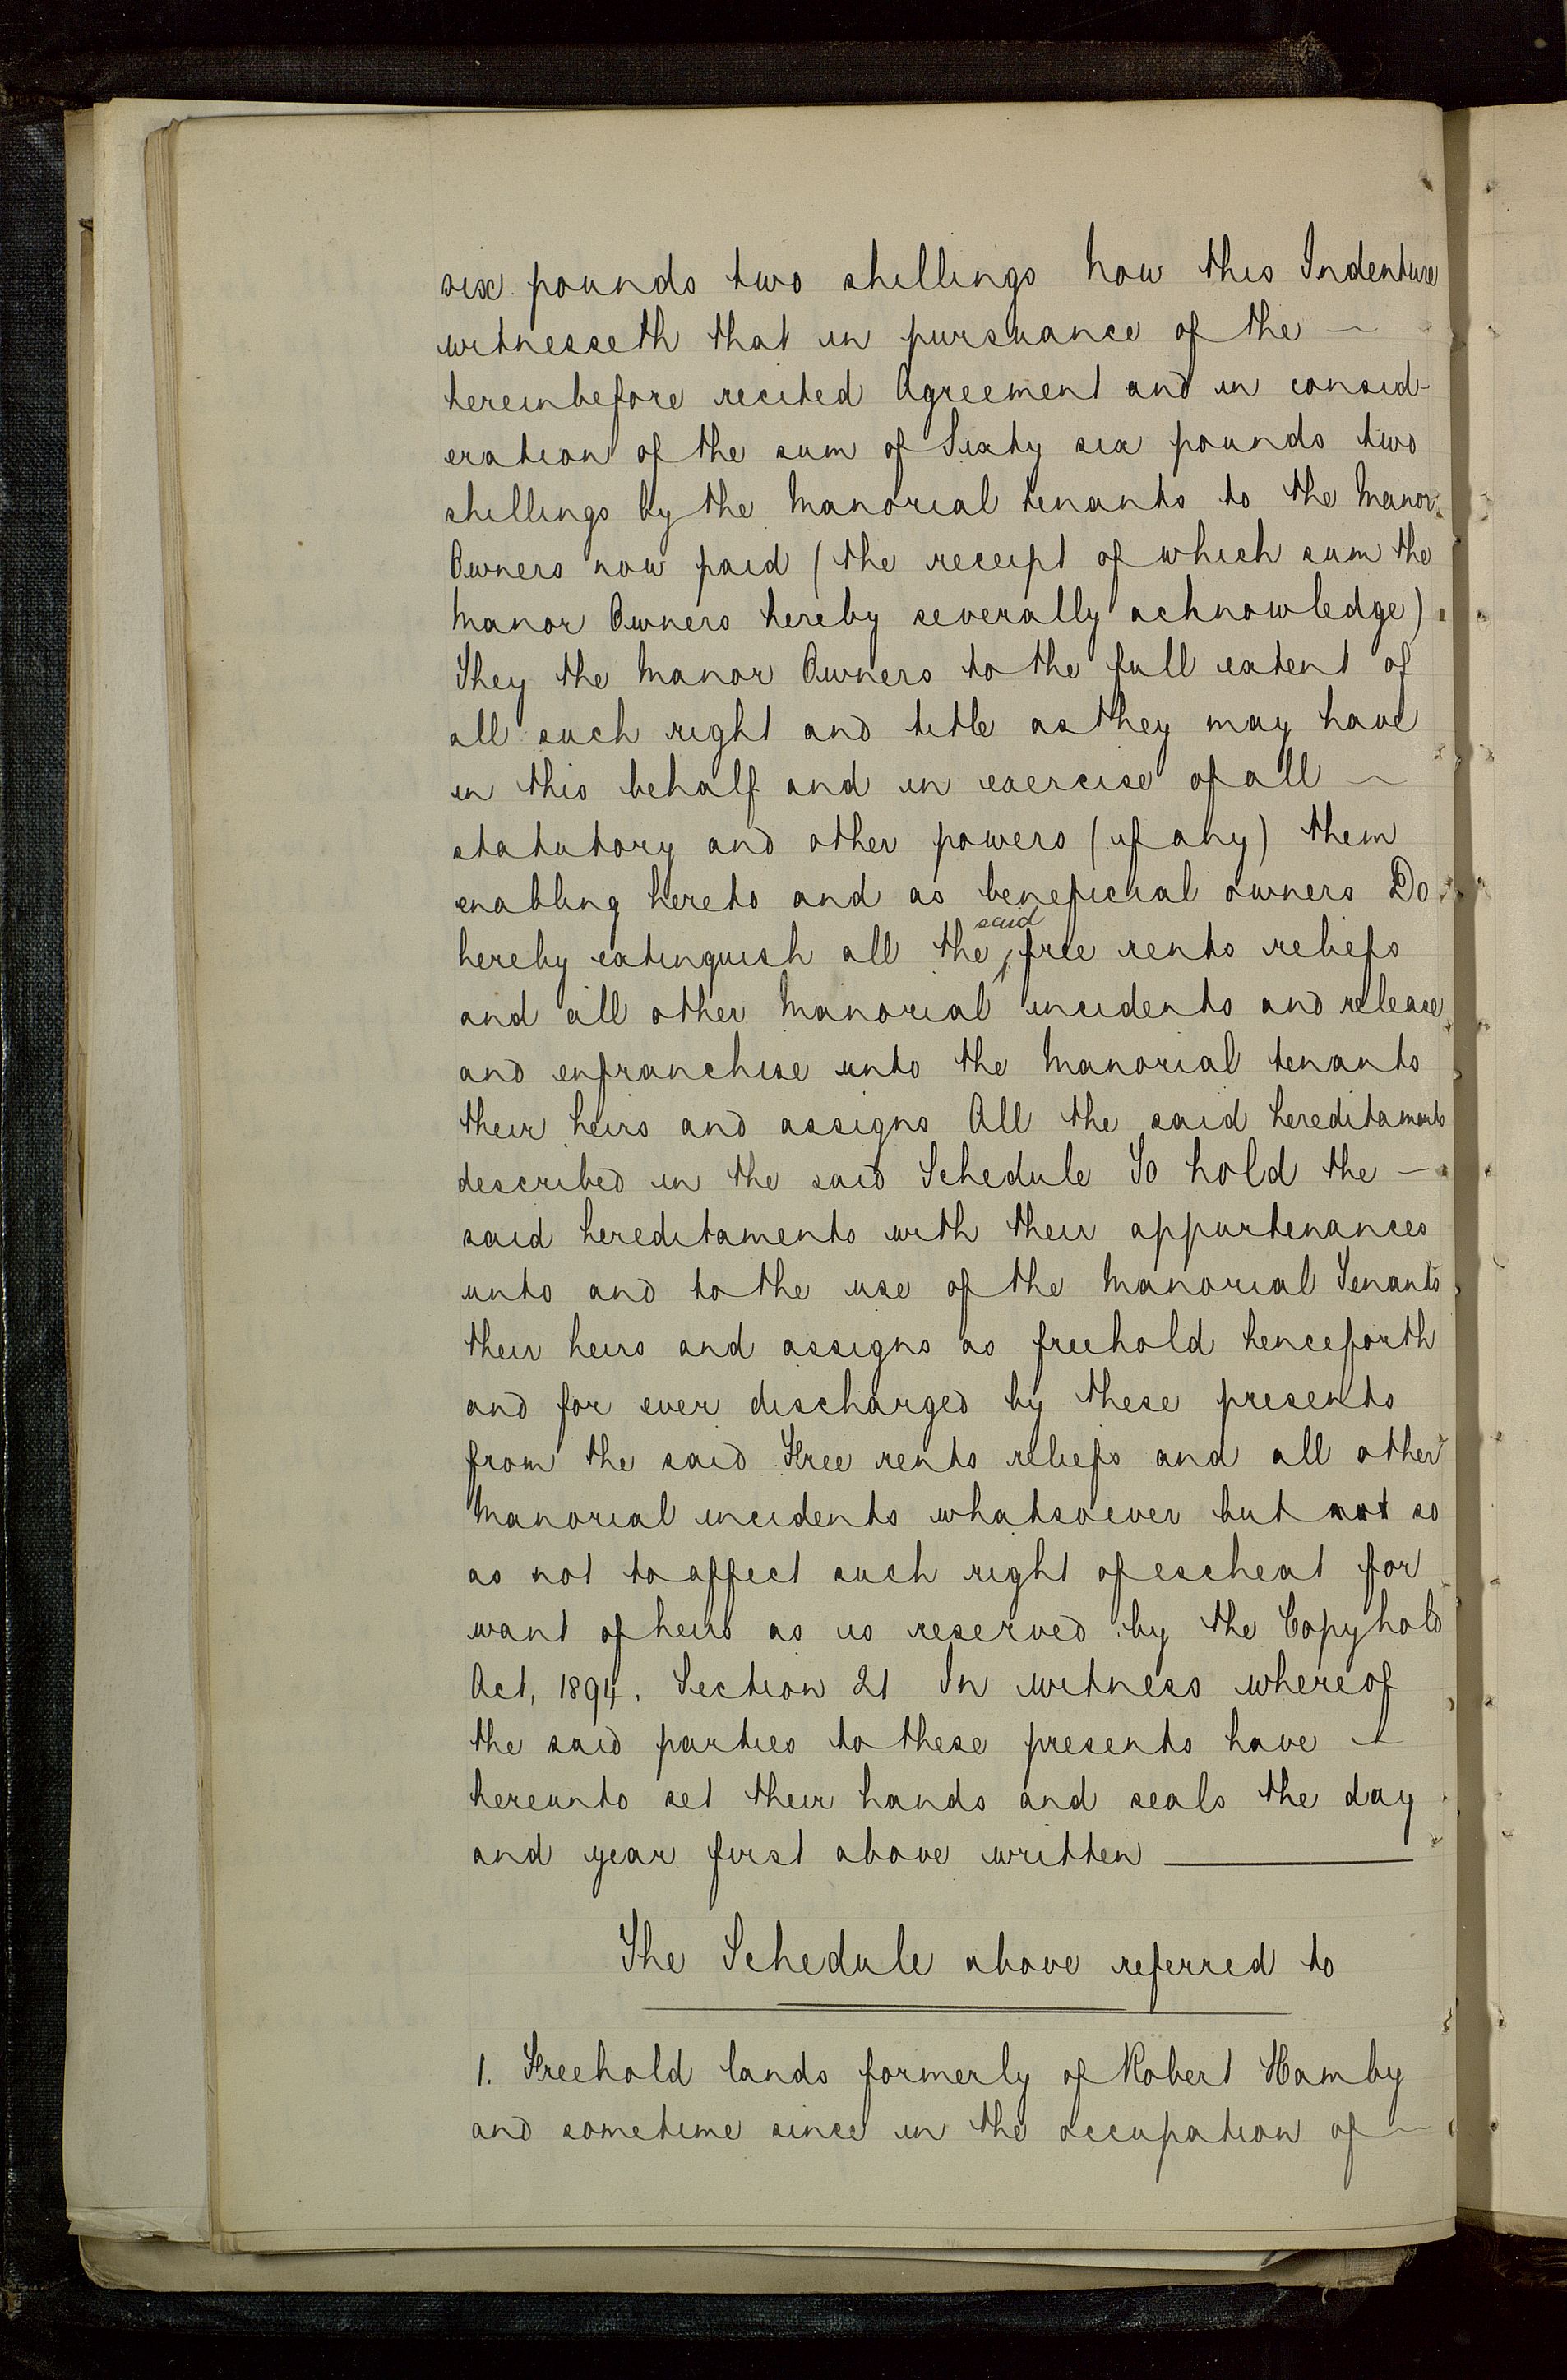 six pounds two shillings Now this Indenture
witnesseth that in pursuance of the —
hereinbefore recited Agreement and in consid-
eration of the sum of Sixty six pounds two
shillings by the Manorial tenants to the Manor
Owners now paid (the receipt of which sum the
Manor Owners hereby severally acknowledge)
They the Manor Owners to the full extent of
all such right and title as they may have
in this behalf and in exercise of all —
statutory and other powers (if any) them
enabling hereto and as beneficial owners Do
said
hereby extinguish all the free rents reliefs
and all other Manorial incidents and release
and enfranchise unto the Manorial tenants
their heirs and assigns All the said hereditaments
described in the said Schedule To hold the —
said hereditaments with their appurtenances
unto and to the use of the Manorial Tenants
their heirs and assigns as freehold henceforth
and for ever discharged by these presents
from the said Free rents reliefs and all other
Manorial incidents whatsoever but not so
as not to affect such right of escheat for
want of heirs as is reserved by the Copyhold
Act, 1894. Section 21 In witness whereof
the said parties to these presents have —
hereunto set their hands and seals the day
and year first above written —
The Schedule above referred to
1. Freehold lands formerly of Robert Hamby
and sometime since in the occupation of —